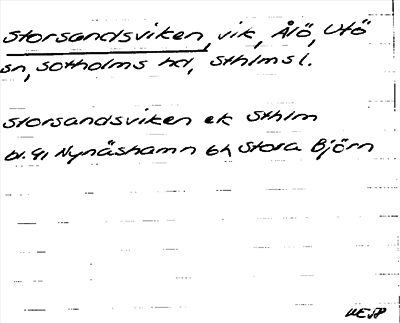 Storsandsviken, vik, Ålö, Utö
sn, Sotholms hd, Sthlms l.
Storsandsviken ek Sthlm
bl. 91 Nynäshamn 6h Stora Björn